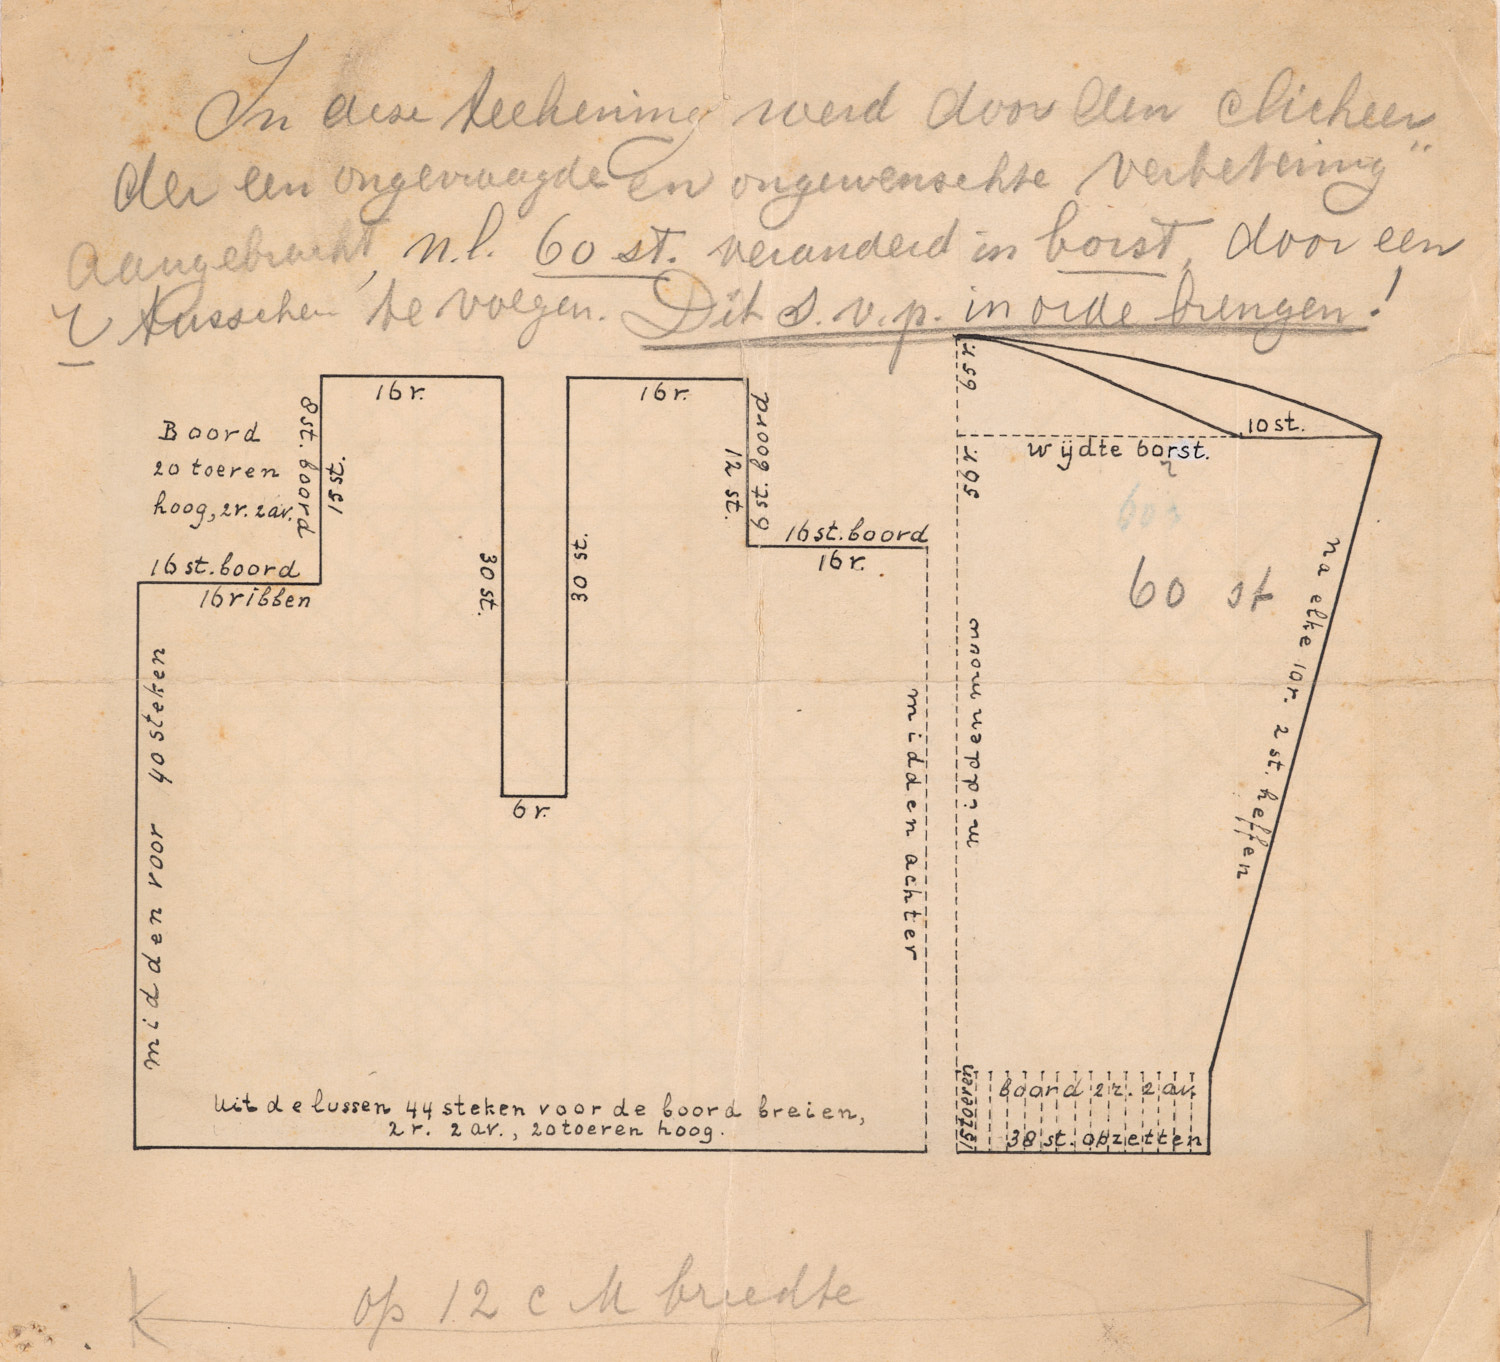 In deze teekening werd door den clicheer
der een ongevraagde en ongewenschte verbetering"
aangebracht, n.l. 60 st. veranderd in borst, door een
r tusschen te voegen. Dit s.v.p. in orde brengen!
Boord
20 toeren
hoog, 2r. 2av.
8st. boord
15 st.
16 r.
16 st. boord
16 ribben
30 st.
30 st.
6 r.
16 r.
6 st. boord
12 st.
16 st. boord
16 r.
midden voor 40 steken
midden achter
Uit de lussen 44 steken voor de boord breien,
2 r. 2 av., 20 toeren hoog.
65 r.
10 st.
wijdte borst.
50 r.
60 st
midden mouw
na elke 10r. 2 st. heffen
15 toeren
boord 2r. 2 av.
38 st. opzetten
op 12 cM breedte